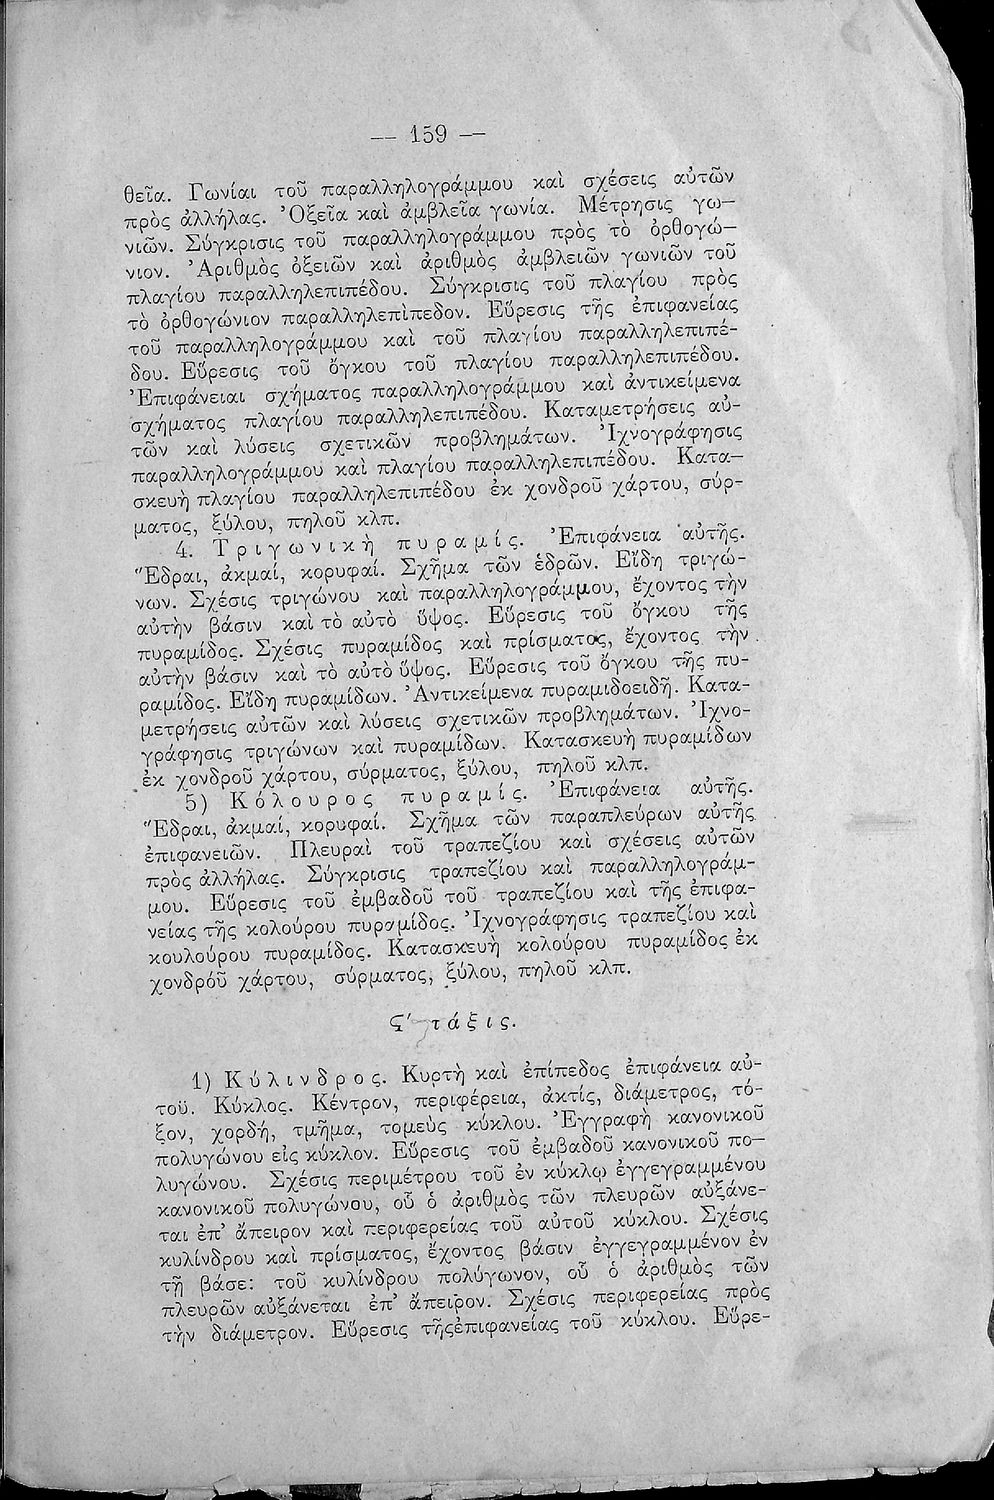 — 159 —
θεῖα. Γωνίαι τοῦ παραλληλογράμμου καὶ σχέσεις αὐτῶν
πρὸς ἀλλήλας. Ὀξεῖα καὶ ἀμβλεῖα γωνία. Μέτρησις γω-
νιῶν. Σύγκρισις τοῦ παραλληλογράμμου πρὸς τὸ ὀρθογώ-
νιον. Ἀριθμὸς ὀξειῶν καὶ ἀριθμὸς ἀμβλειῶν γωνιῶν τοῦ
πλαγίου παραλληλεπιπέδου. Σύγκρισις τοῦ πλαγίου πρὸς
τὸ ὀρθογώνιον παραλληλεπίπεδον. Εὕρεσις τῆς ἐπιφανείας
τοῦ παραλληλογράμμου καὶ τοῦ πλαγίου παραλληλεπιπέ-
δου. Εὕρεσις τοῦ ὄγκου τοῦ πλαγίου παραλληλεπιπέδου.
Ἐπιφάνειαι σχήματος παραλληλογράμμου καὶ ἀντικείμενα
σχήματος πλαγίου παραλληλεπιπέδου. Καταμετρήσεις αὐ-
τῶν καὶ λύσεις σχετικῶν προβλημάτων. Ἰχνογράφησις
παραλληλογράμμου καὶ πλαγίου παραλληλεπιπέδου. Κατα-
σκευὴ πλαγίου παραλληλεπιπέδου ἐκ χονδροῦ χάρτου, σύρ-
ματος, ξύλου, πηλοῦ κλπ.
4. Τριγωνικὴ πυραμίς. Ἐπιφάνεια αὐτῆς.
Ἕδραι, ἀκμαί, κορυφαί. Σχῆμα τῶν ἑδρῶν. Εἴδη τριγώ-
νων. Σχέσις τριγώνου καὶ παραλληλογράμμου, ἔχοντος τὴν
αὐτὴν βάσιν καὶ τὸ αὐτὸ ὕψος. Εὕρεσις τοῦ ὄγκου τῆς
πυραμίδος. Σχέσις πυραμίδος καὶ πρίσματος, ἔχοντος τὴν
αὐτὴν βάσιν καὶ τὸ αὐτὸ ὕψος. Εὕρεσις τοῦ ὄγκου τῆς πυ-
ραμίδος. Εἴδη πυραμίδων. Ἀντικείμενα πυραμιδοειδῆ. Κατα-
μετρήσεις αὐτῶν καὶ λύσεις σχετικῶν προβλημάτων. Ἰχνο-
γράφησις τριγώνων καὶ πυραμίδων. Κατασκευὴ πυραμίδων
ἐκ χονδροῦ χάρτου, σύρματος, ξύλου, πηλοῦ κλπ.
5) Κόλουρος πυραμίς. Ἐπιφάνεια αὐτῆς.
Ἕδραι, ἀκμαί, κορυφαί. Σχῆμα τῶν παραπλεύρων αὐτῆς
ἐπιφανειῶν. Πλευραὶ τοῦ τραπεζίου καὶ σχέσεις αὐτῶν
πρὸς ἀλλήλας. Σύγκρισις τραπεζίου καὶ παραλληλογράμ-
μου. Εὕρεσις τοῦ ἐμβαδοῦ τοῦ τραπεζίου καὶ τῆς ἐπιφα-
νείας τῆς κολούρου πυραμίδος. Ἰχνογράφησις τραπεζίου καὶ
κουλούρου πυραμίδος. Κατασκευὴ κολούρου πυραμίδος ἐκ
χονδροῦ χάρτου, σύρματος, ξύλου, πηλοῦ κλπ.
Ϛ′ τάξις.
1) Κύλινδρος. Κυρτὴ καὶ ἐπίπεδος ἐπιφάνεια αὐ-
τοῦ. Κύκλος. Κέντρον, περιφέρεια, ἀκτίς, διάμετρος, τό-
ξον, χορδή, τμῆμα, τομεὺς κύκλου. Ἐγγραφὴ κανονικοῦ
πολυγώνου εἰς κύκλον. Εὕρεσις τοῦ ἐμβαδοῦ κανονικοῦ πο-
λυγώνου. Σχέσις περιμέτρου τοῦ ἐν κύκλῳ ἐγγεγραμμένου
κανονικοῦ πολυγώνου, οὗ ὁ ἀριθμὸς τῶν πλευρῶν αὐξάνε-
ται ἐπ' ἄπειρον καὶ περιφερείας τοῦ αὐτοῦ κύκλου. Σχέσις
κυλίνδρου καὶ πρίσματος, ἔχοντος βάσιν ἐγγεγραμμένον ἐν
τῇ βάσει τοῦ κυλίνδρου πολύγωνον, οὗ ὁ ἀριθμὸς τῶν
πλευρῶν αὐξάνεται ἐπ' ἄπειρον. Σχέσις περιφερείας πρὸς
τὴν διάμετρον. Εὕρεσις τῆςἐπιφανείας τοῦ κύκλου. Εὕρε-